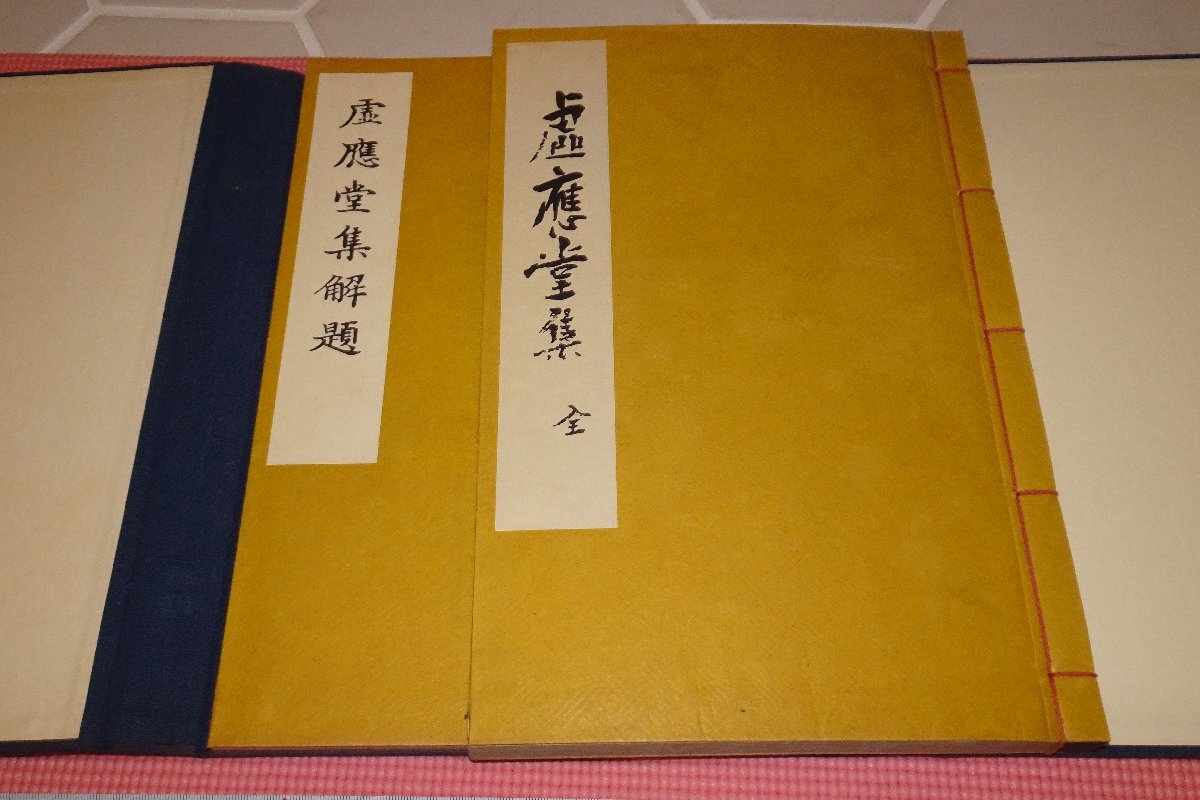 虛應堂集 全
虛應堂集解題